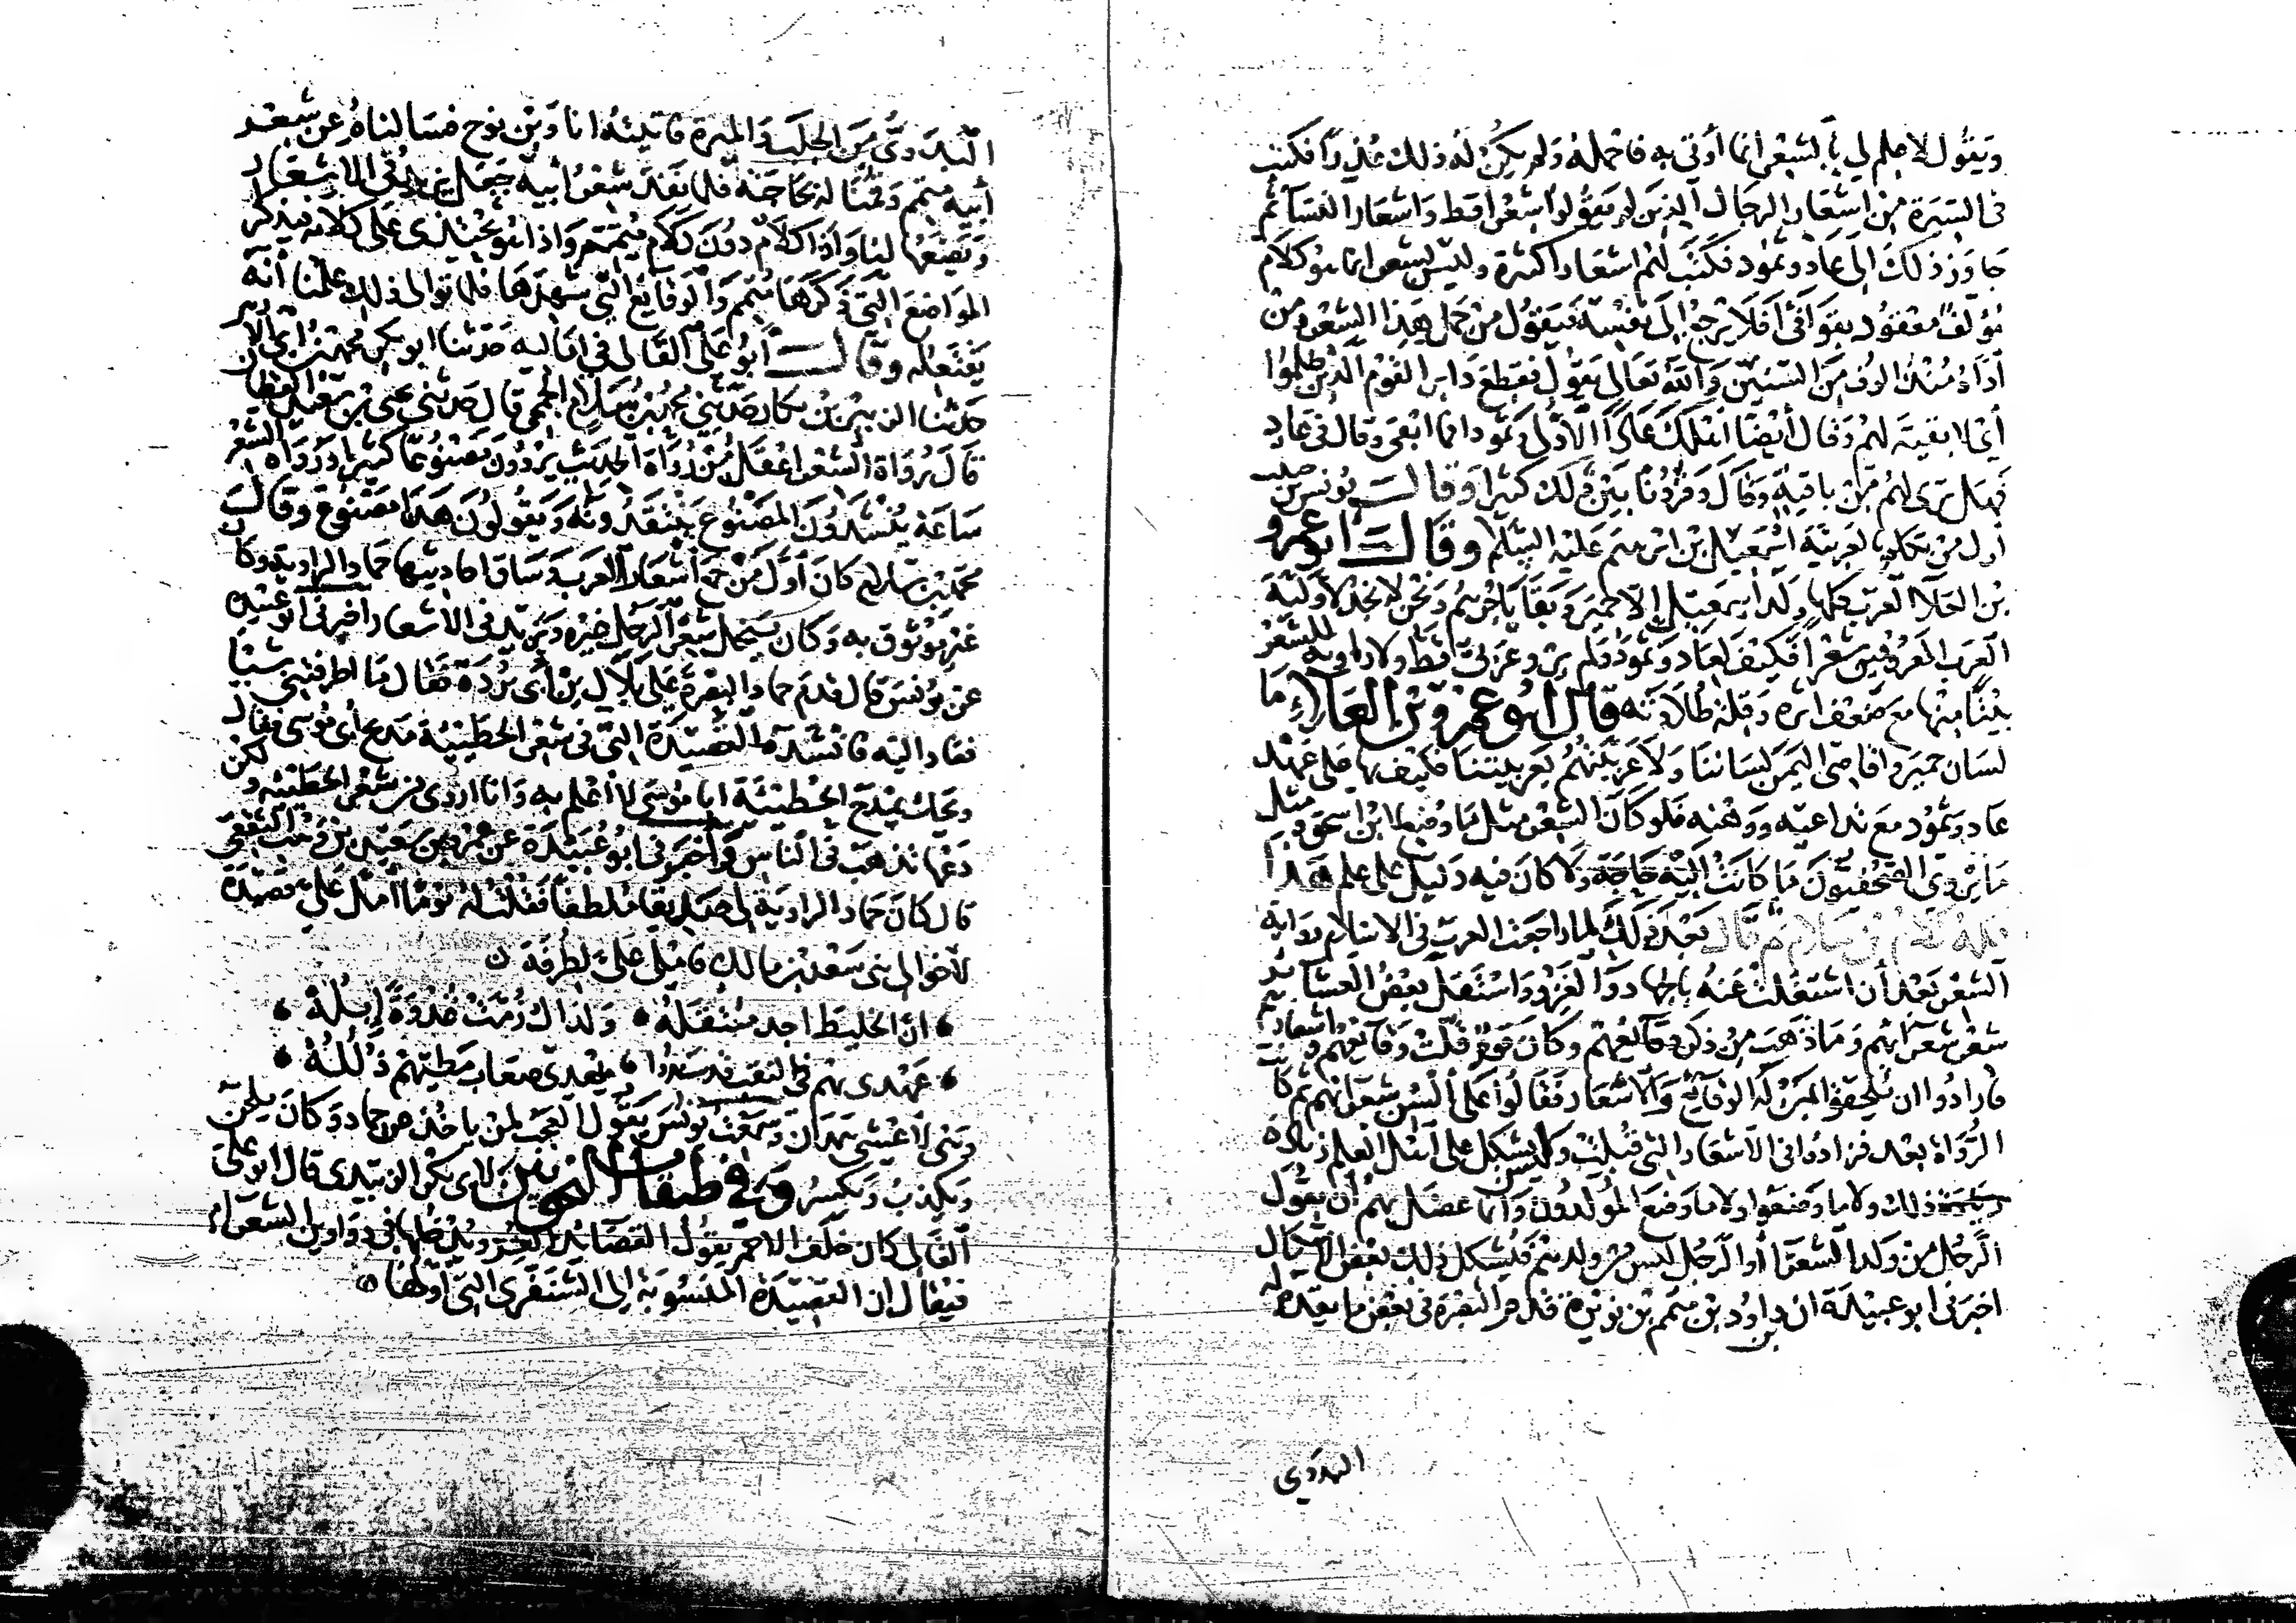 ويقول لا علم لي بالشعر انما أوتى به فاحمله ولم يكن له ذلك عذرا فكتب
فى السيرة من اشعار الرجال الذين لم يقولوا شعرا قط واشعار النساء ثم
جاوز ذلك الى عاد وثمود فكتب لهم اشعارا كثيرة وليس بشعر انما هو كلام
مؤلف معقود بقوافى أفلا يرجع الى نفسه فيقول من حمل هذا الشعر ومن
أداه منذ الوف من السنين والله تعالى يقول فقطع دابر القوم الذين ظلموا
أى لا بقية لهم وقال أيضا اهلك عادا الأولى وثمود افما ابقى وقال فى عاد
فهل ترى لهم من باقية وقال وقرونا بين ذلك كثيرا وقال يونس بن حبيب
أول من تكلم بالعربية اسمعيل بن ابرهيم عليه السلم وقال ابو عمرو
بن العلآ العرب كلها ولد اسمعيل إلا حمير وبقايا جرهم ونحن لا نجد لأولية
العرب المعروفين شعرا فكيف بعاد وثمود ولم يرو عربى قط ولا راوية للشعر
بيتا منها مع ضعف اسره وقلة طلاوته قال ابو عمرو بن العلاء ما
لسان حمير واقاصى اليمن لساننا ولا عربيتهم بعربيتنا فكيف بها على عهد
عاد وثمود مع تداعيه ووهنه فلو كان الشعر مثل ما وضع لابن اسحق ومثل
ما يروى الصحفيون ما كانت اليه حاجة ولا كان فيه دليل على علم هذا
كله كلام بن سلام ثم قال بعد ذلك لما راجعت العرب فى الاسلام رواية
الشعر بعد أن اشتغلت عنه بالجهاد والغزو واستقل بعض العشائر
شعر شعرآئهم وما ذهب من ذكر وقائعهم وكان قوم قلت وقائعهم واشعارهم
فارادوا ان يلحقوا بمن له الوقائع والاشعار فقالوا على ألسن شعرائهم ثم كانت
الرواة بعد فزادوا فى الأشعار التى قيلت وليس يشكل على أهل العلم زيادة
ذلك ولا ما وضعوا ولا ما وضع المولدون وانما عضل بهم أن يقول
الرجل من ولد الشعرا أو الرجل ليس من ولدهم فيشكل ذلك بعض الاشكال
اخبرنى ابو عبيدة ان داود بن متمم بن نويرة قدم البصرة فى بعض ما يقدم له
البدوي
البدوى من الجلب والميرة فاتيته انا وبن نوح فسألناه عن شعر
أبيه متمم وقمنا له بحاجته فلما نفد شعر أبيه جعل يزيد فى الاشعار
ويضعها لنا واذا كلام دون كلام متمم واذا هو يحتذى على كلامه فيذكر
المواضع التى ذكرها متمم والوقائع التى شهدها فلما توالى ذلك علمنا أنه
يفتعله وقال أبو على القالى فى اماليه حدثنا ابو بكر محمد بن أبى الازهر
حدثنا الزبير بن بكار حدثنى محمد بن سلام الجمحى قال حدثنى يحيى بن سعيد القطان
قال رواة الشعر اعقل من رواة الحديث يروون مصنوعا كثيرا ورواة الشعر
ساعة ينشدون المصنوع ينتقدونه ويقولون هذا مصنوع وقال
محمد بن سلام كان أول من جمع أشعار العرب وساق احاديثها حماد الراوية وكان
غير موثوق به وكان ينحل شعر الرجل غيره ويزيد فى الأشعار اخبرنى ابو عبيدة
عن يونس قال قدم حماد البصرة على بلال بن أبى بردة فقال ما اطرفتنى شيئا
فعاد اليه فانشده القصيدة التى فى شعر الحطيئة مديح أبى موسى فقال
ويحك يمدح الحطيئة ابا موسى لا أعلم به وانا اروى من شعر الحطيئة ولكن
دعها تذهب فى الناس واخبرنى ابو عبيدة عن عمر بن سعيد بن وهب الثقفى
قال كان حماد الراوية لى صديقا ملطفا فقلت له يوما أمل على قصيدة
لأخوالى بنى سعد بن مالك فاملى على لطرفة
ان الخليط اجد منتقله ولذاك زمت غدوة إبله
عهدى بهم فى النقب قد سندوا يهدى صعاب مطيهم ذلله
وهى لاعشى همدان وسمعت يونس يقول العجب لمن ياخذ عن حماد وكان يلحن
ويكذب ويكسر وفى طبقات النحويين لابى بكر الزبيدى قال ابو على
القالى كان خلف الاحمر يقول القصائد الغر ويدخلها فى دواوين الشعراء
فيقال ان القصيدة المنسوبة إلى الشنفرى التى أولها